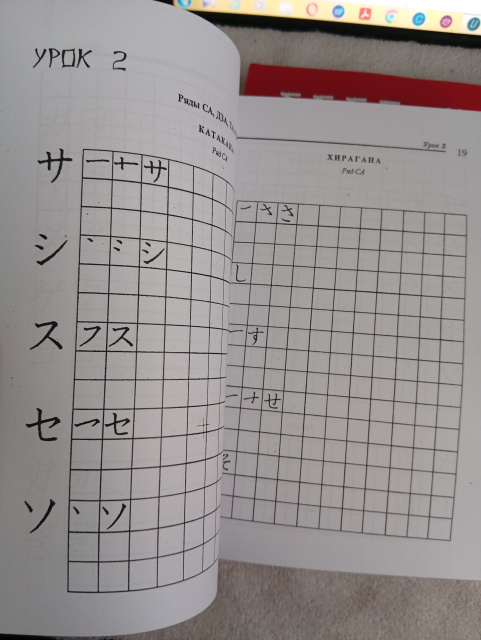 УРОК 2
Ряды СА, ДЗА,
КАТАКАНА
Ряд СА
サ 一 ナ サ
シ 丶 ⺀ シ
ス フ ス
セ 乛 セ
ソ 丶 ソ
Урок 2 19
ХИРАГАНА
Ряд СА
一 き さ
し
一 す
一 ナ せ
そ